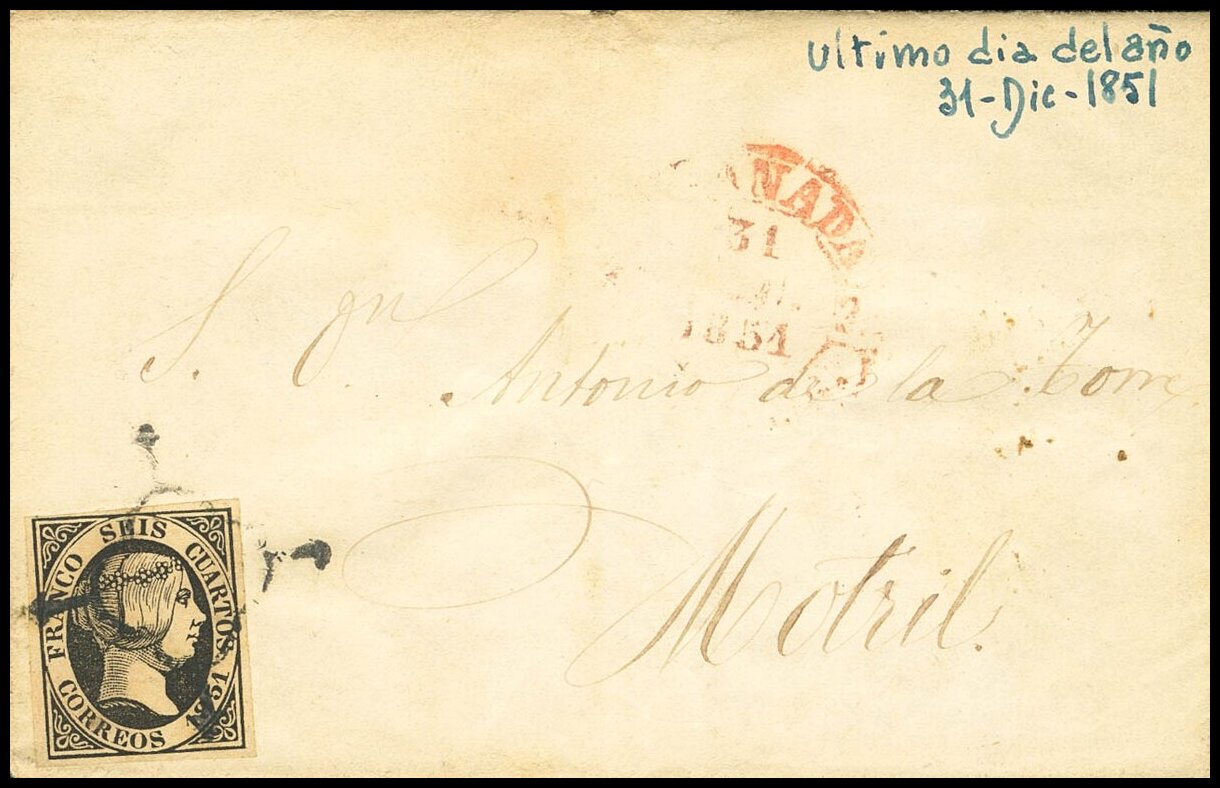 ultimo dia del año
31-Dic-1851
ANADA
31
1851
S. D.
Antonio de la Torre
Motril.
FRANCO SEIS CUARTOS. 1851
CORREOS